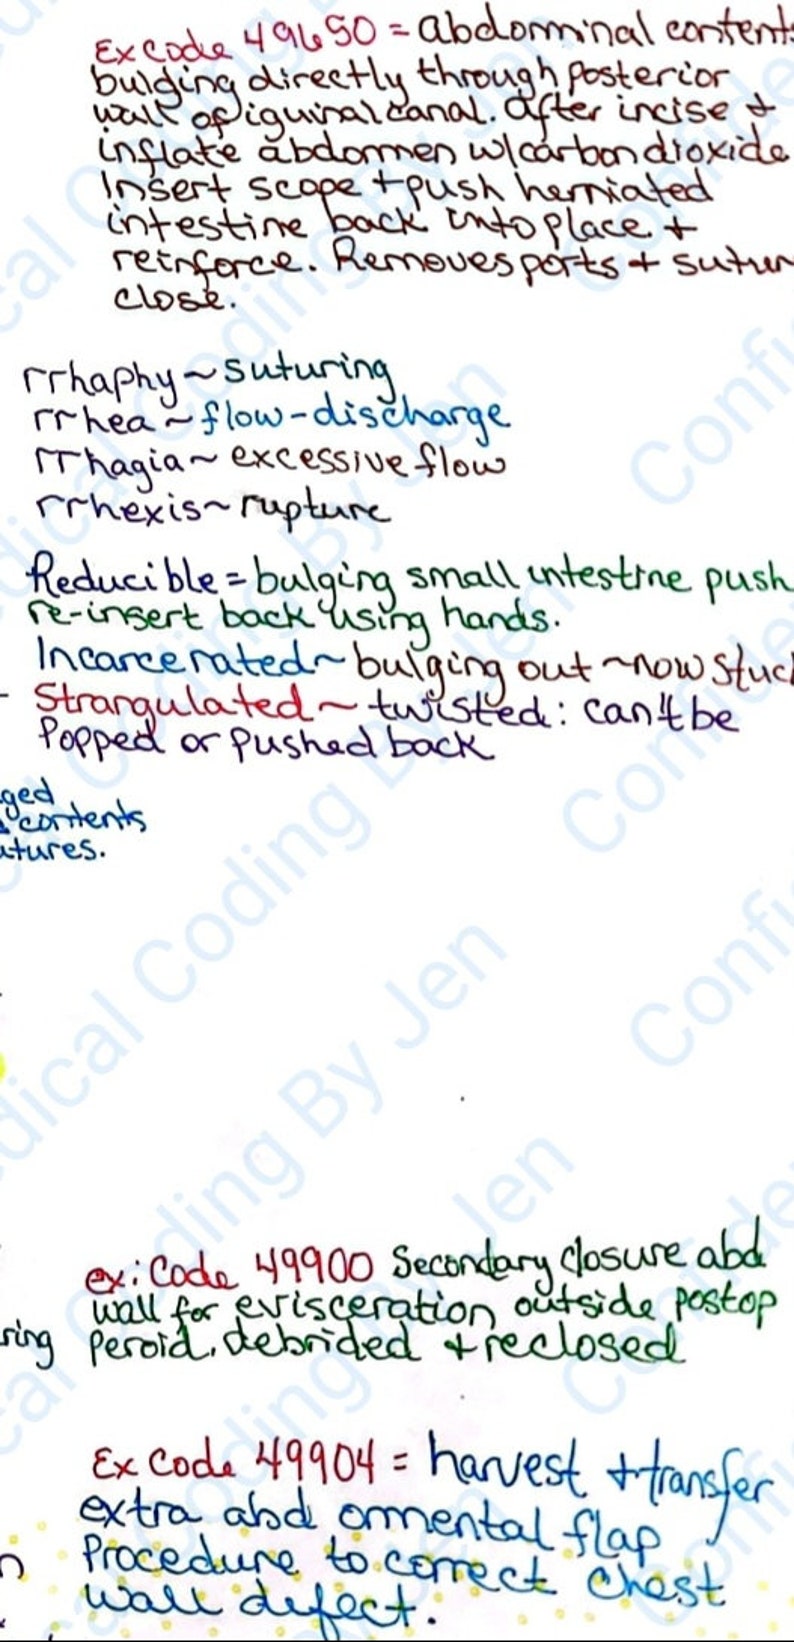 Ex code 49650 = abdominal contents
bulging directly through posterior
wall of iguinal canal. After incise +
inflate abdomen w/carbon dioxide
Insert scope + push herniated
intestine back into place +
reinforce. Removes ports + sutur
close.
rrhaphy ~ suturing
rrhea ~ flow - discharge
rrhagia ~ excessive flow
rrhexis ~ rupture
Reducible = bulging small intestine push
re-insert back using hands.
Incarcerated ~ bulging out ~ now stuck
- Strangulated ~ twisted: can't be
Popped or pushed back
ged
contents
tures.
ex: Code 49900 Secondary closure abd
wall for evisceration outside postop
ring peroid. debrided + reclosed
Ex Code 49904 = harvest + transfer
extra abd ommental flap
n procedure to correct chest
wall defect.
Medical Coding By Jen
Confidential